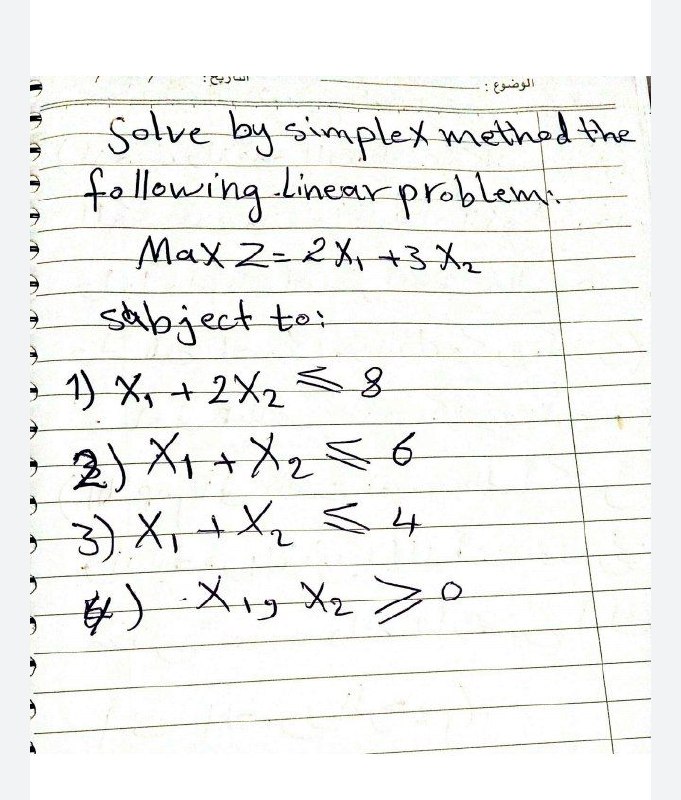 التاريخ: / /
الوضوع:
Solve by simplex method the
following linear problem:
Max Z = 2X₁ + 3X₂
subject to:
1) X₁ + 2X₂ ≤ 8
2) X₁ + X₂ ≤ 6
3) X₁ + X₂ ≤ 4
4) X₁, X₂ ≥ 0